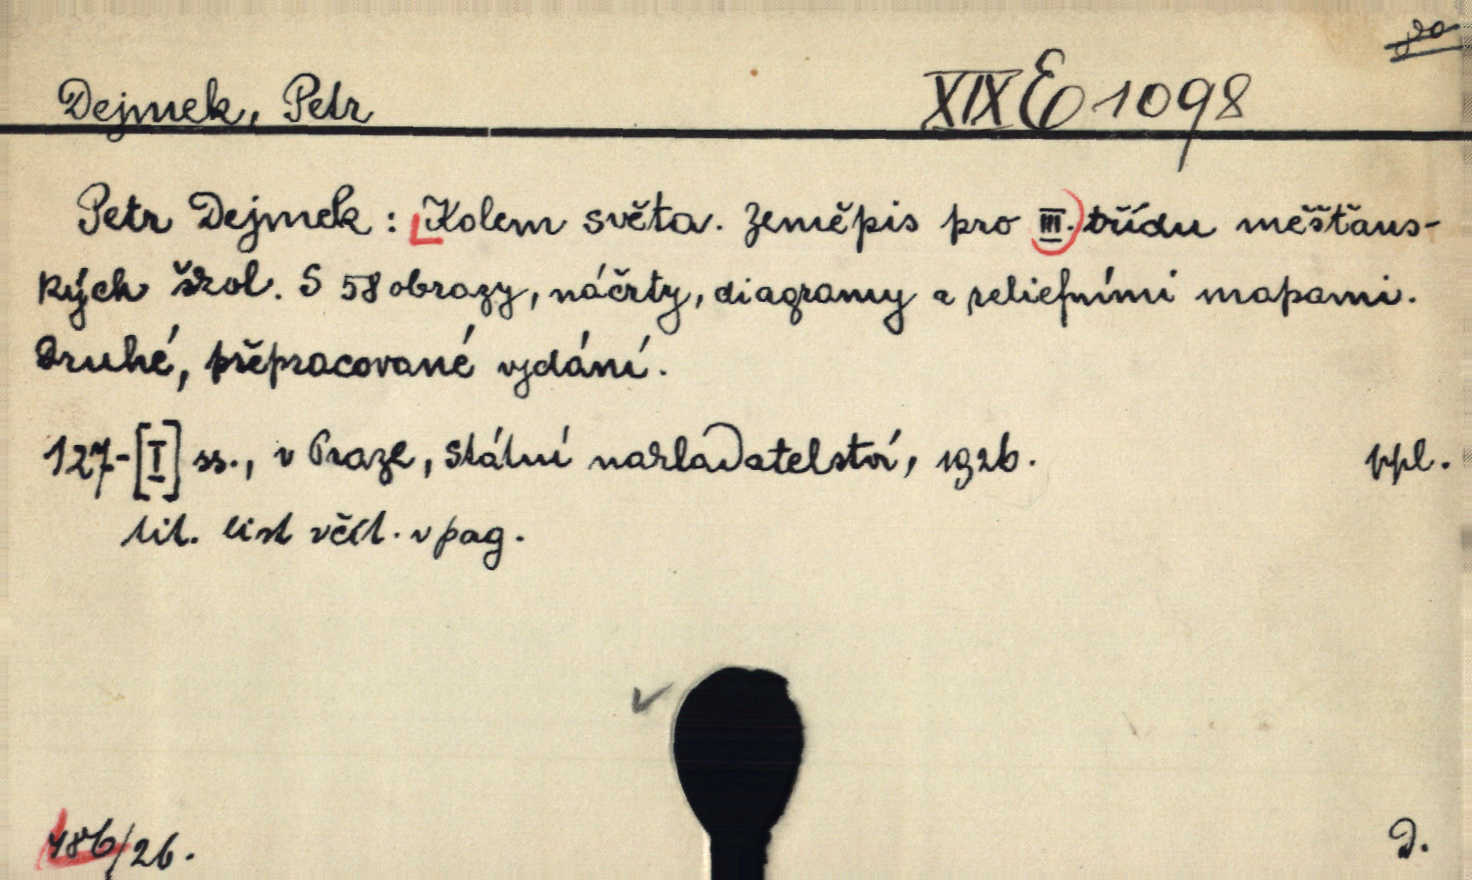 Dejmek, Petr
XIX E 1098
Petr Dejmek: Kolem světa. Zeměpis pro III. třídu měšťans-
kých škol. S 58 obrazy, náčrty, diagramy a reliefními mapami.
Druhé, přepracované vydání.
127-[I] ss., v Praze, Státní nakladatelství, 1926. ppl.
tit. list včít. v pag.
486/26. D.